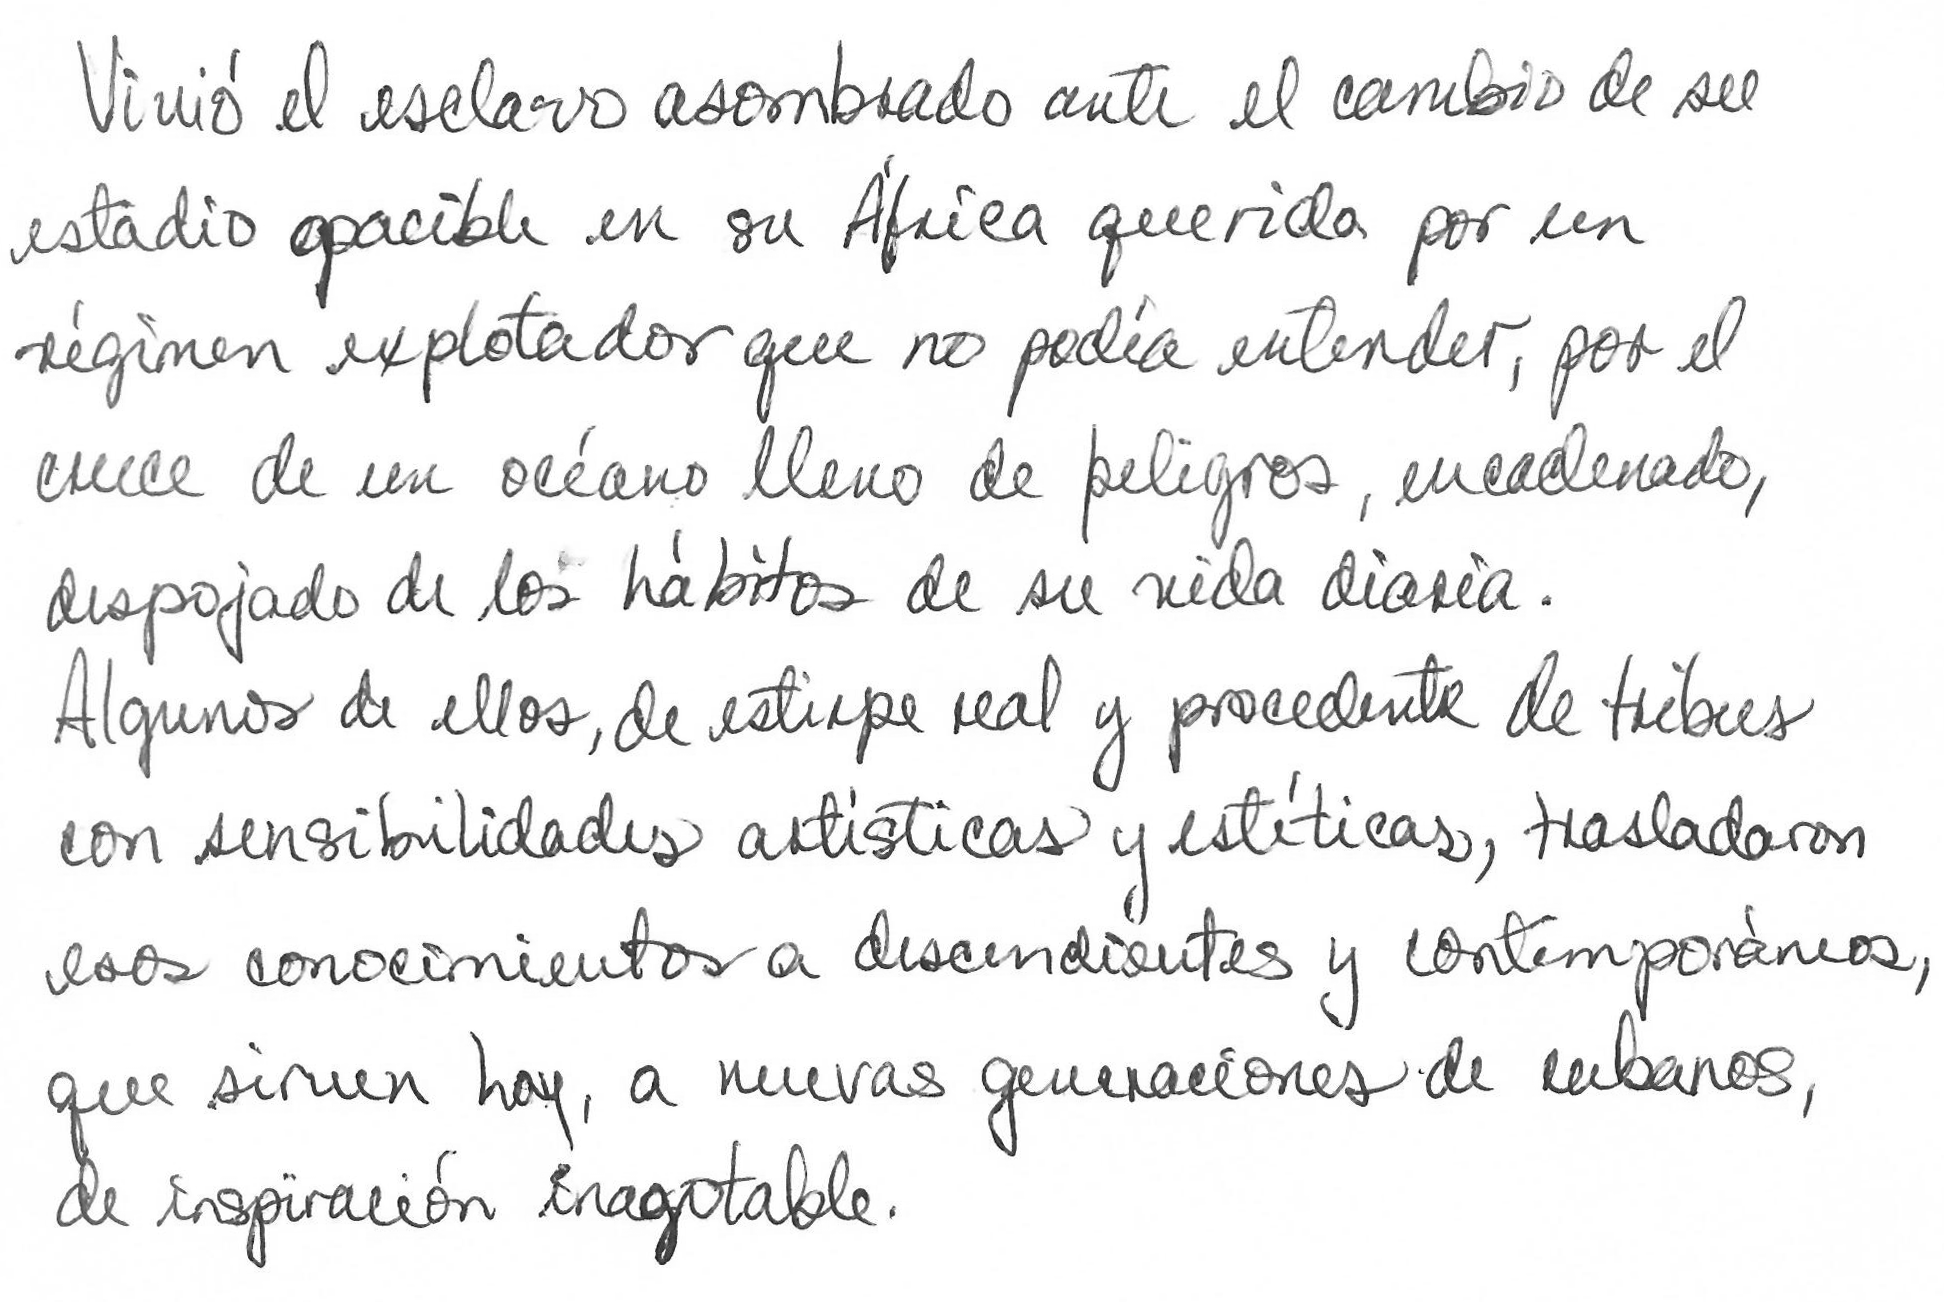 Vivió el esclavo asombrado ante el cambio de su
estadio apacible en su África querida por un
régimen explotador que no podía entender, por el
cruce de un océano lleno de peligros, encadenado,
despojado de los hábitos de su vida diaria.
Algunos de ellos, de estirpe real y procedente de tribus
con sensibilidades artísticas y estéticas, trasladaron
esos conocimientos a descendientes y contemporáneos,
que sirven hoy, a nuevas generaciones de cubanos,
de inspiración inagotable.